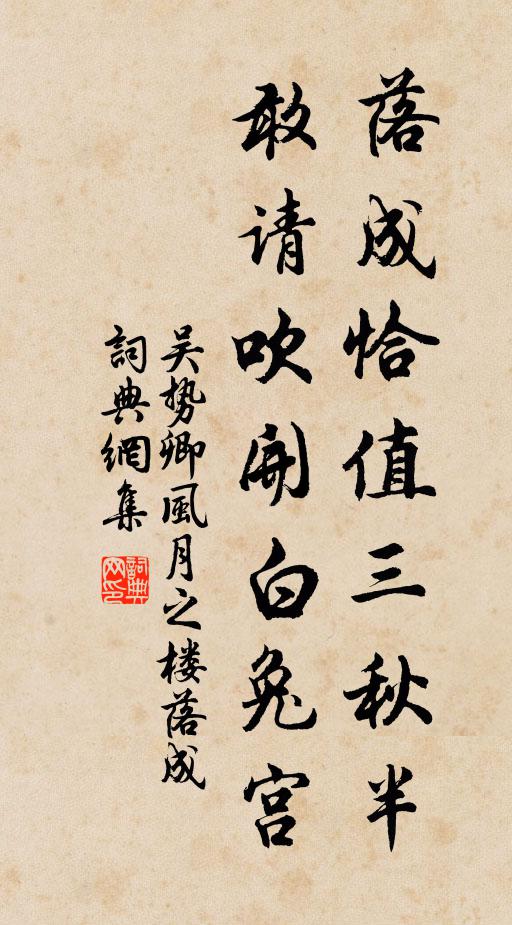 落成恰值三秋半
敢请吹开白兔宫
吴势卿風月之楼落成
詞典網集
詞典网印